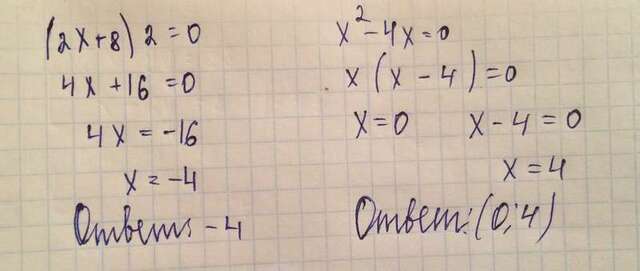 (2x+8) 2 = 0
4x + 16 = 0
4x = -16
x = -4
Ответ: -4
x² - 4x = 0
x (x - 4) = 0
x = 0 x - 4 = 0
x = 4
Ответ: (0; 4)